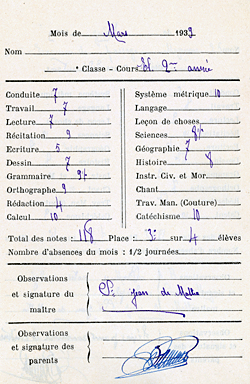 Mois de Mars 1939
Nom
e Classe - Cours El. 2me année
Conduite 7
Travail 7
Lecture 7
Récitation 9
Ecriture 5
Dessin 7
Grammaire 9½
Orthographe 9
Rédaction 4
Calcul 10
Système métrique 10
Langage
Leçon de choses
Sciences 8½
Géographie 7
Histoire 8
Instr. Civ. et Mor.
Chant
Trav. Man. (Couture)
Catéchisme 10
Total des notes : 118 Place : 3e sur 4 élèves
Nombre d'absences du mois : 1/2 journées
Observations
et signature du
maître
Sr Jean de Matha
Observations
et signature des
parents